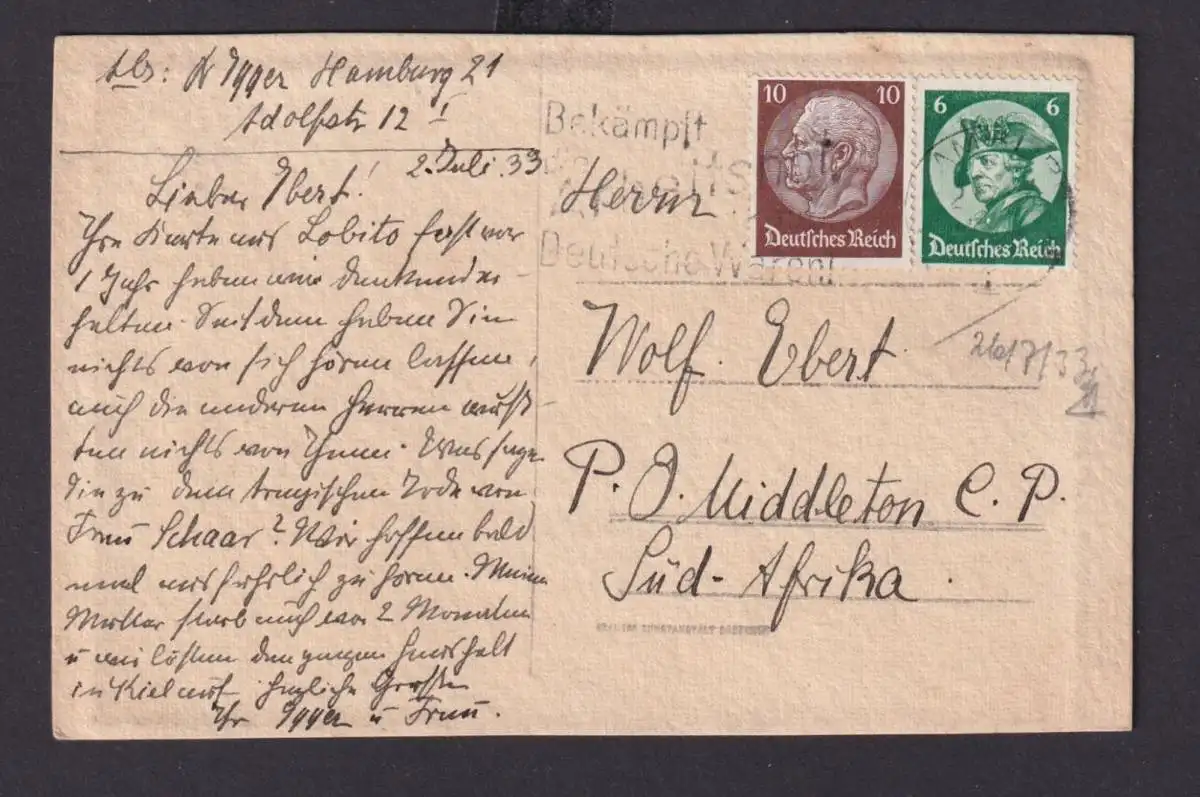 Abs: Egger Hamburg 21
Adolfstr 12 I
2. Juli 33
Lieber Ebert!
Ihre Karte aus Lobito fast vor
1 Jahr haben wir dankend er-
halten. Seit dem haben Sie
nichts von sich hören lassen,
auch die anderen Herren wuß-
ten nichts von Ihnen. Was sagen
Sie zu dem tragischen Tode von
Frau Schaar? Wir hoffen bald
mal ausführlich zu hören. Meine
Mutter starb auch vor 2 Monaten
u wir lösten den ganzen Haushalt
in Kiel auf. Herzliche Grüße
Ihr Egger u Frau.
Bekämpft
Deutsche Waren!
10 10
Deutsches Reich
6 6
Deutsches Reich
Herrn
Wolf. Ebert.
26/7/33
P. O. Middleton C. P.
Süd-Afrika.